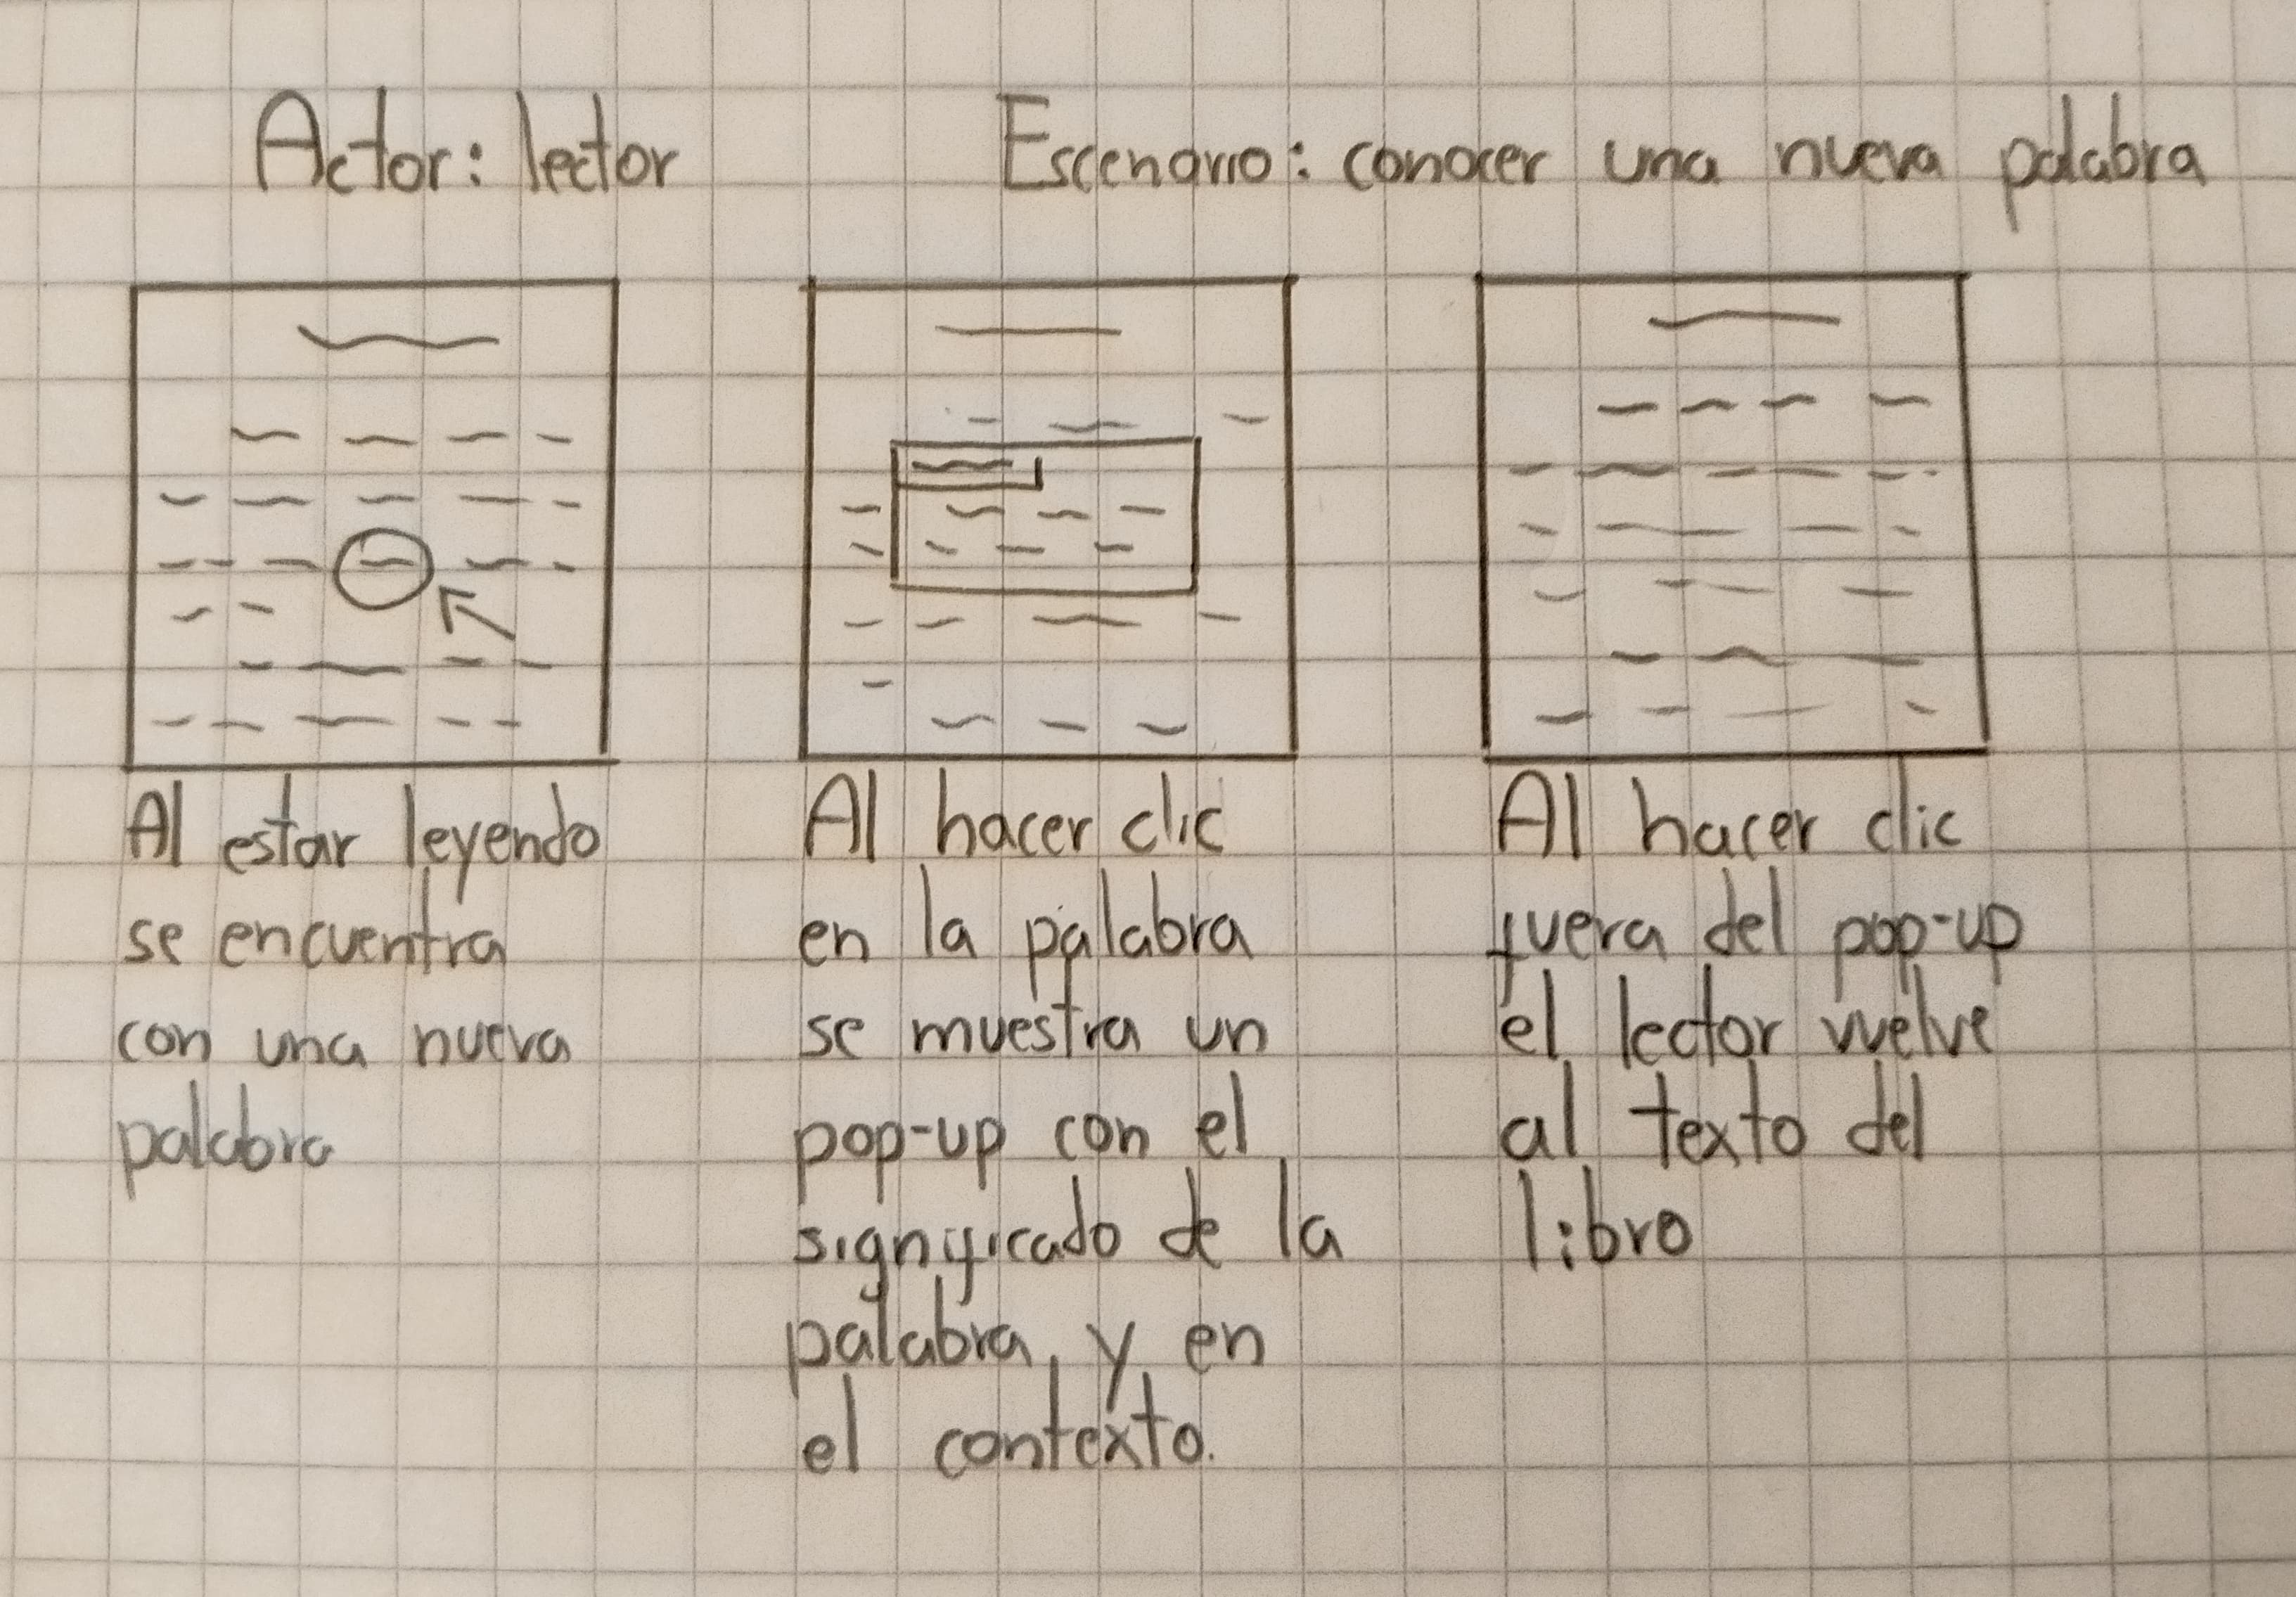 Actor: lector
Escenario: conocer una nueva palabra
Al estar leyendo
se encuentra
con una nueva
palabra
Al hacer clic
en la palabra
se muestra un
pop-up con el
significado de la
palabra, y en
el contexto.
Al hacer clic
fuera del pop-up
el lector vuelve
al texto del
libro